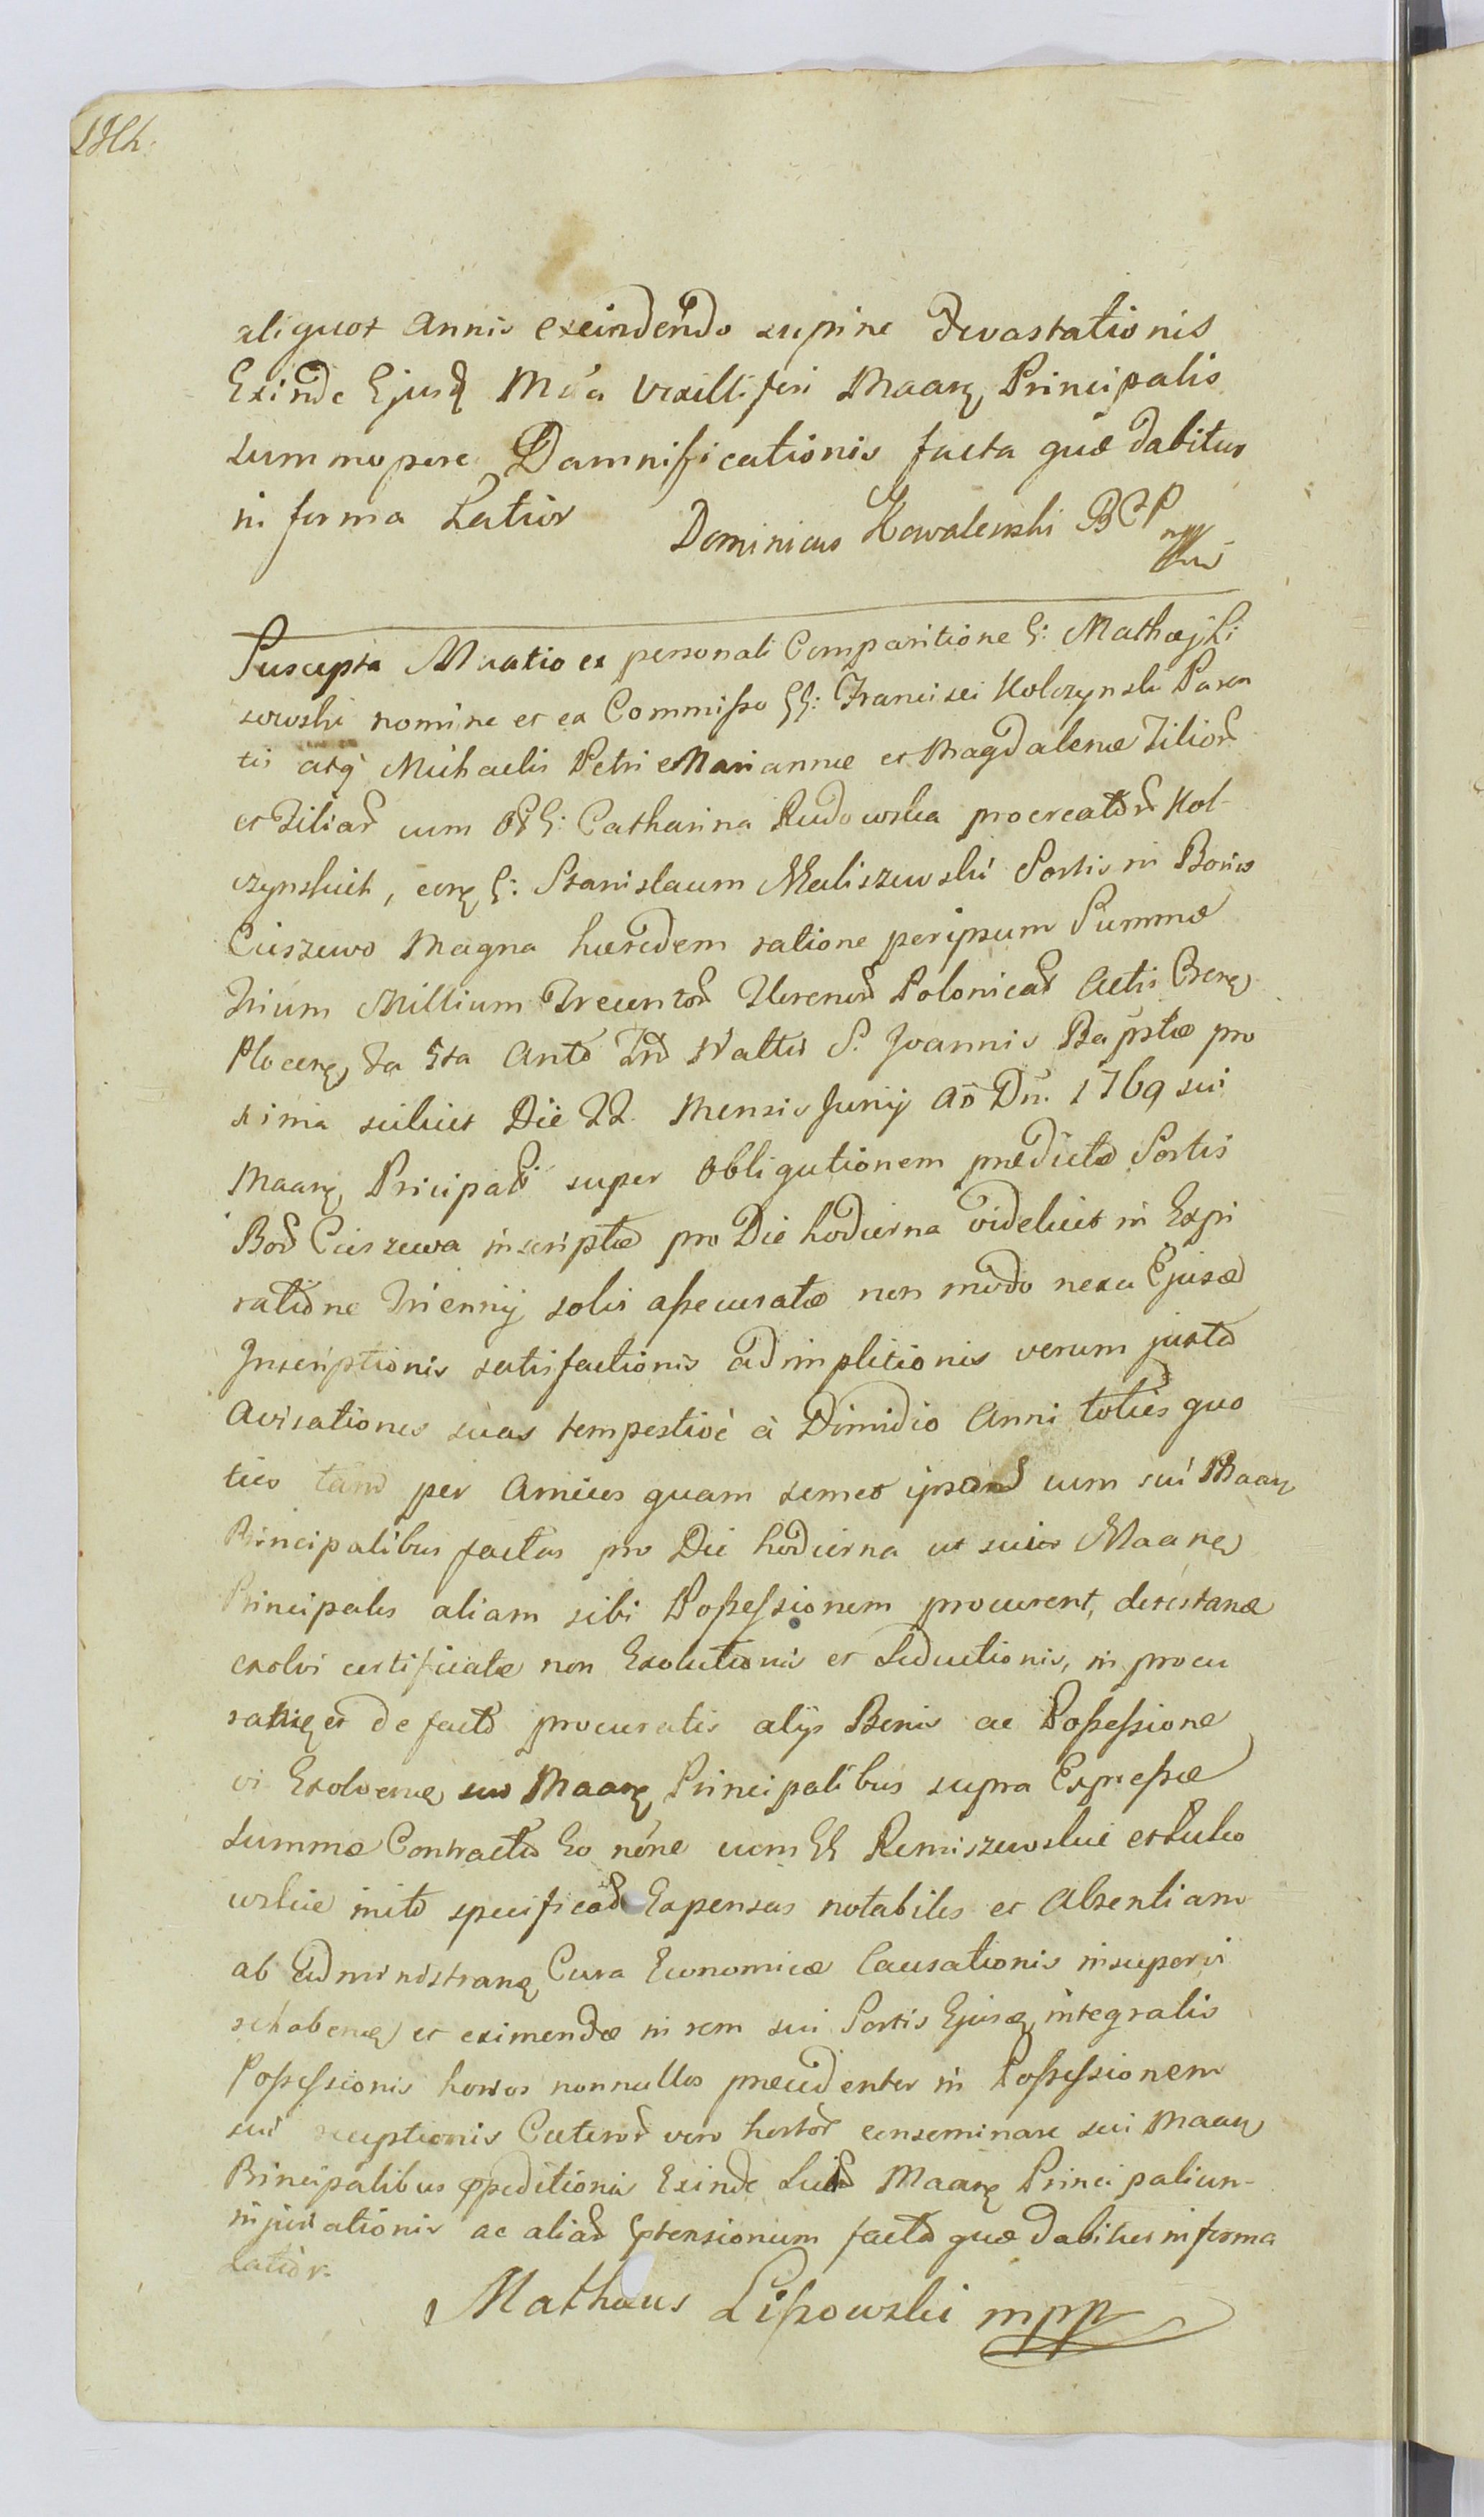 aliquot annis exeindendo supine Devastationis
Exinde Ejusq Mĕa Vexilliferi Maarq Principalis
summopere Damnificationis facta quæ dabitur
in forma Latior
Dominicus Kowalewski BCP mpp
Suscepta Mratio ex personali Comparitione G: Mathæj Li
sowski nomine et ex Commisso GG: Francisci Kolczynski Paren
tis atq Michaelis Petri Mariannæ et Magdalenæ Filior
et Filiar cum G: Catharina Rudowska procreator Kol-
czynskich, corq G: Stanislaum Maliszewski Sortis in Bonis
Ciuszewo Magna hæredem ratione per ipsum Summæ
Trium Millium Trecentor Florenor Polonical Actis Crenq
Plocenq, Fa 5ta Ante Frd Nattis S. Joannis Baptæ pro
xima scilicet Die 22 Mensis Junij Aō Dn. 1769 sui
Maarq Pricipal super Obligationem prædictæ Sortis
Bor Ciuszewa inscriptæ pro Die hodierna videlicet in Expi
ratione Triennij solis assecuratæ non modo nexu Ejusd
Inscriptionis satisfactionis adimpletionis verum juxta
Avisationes suas tempestivè à Dimidio Anni toties quo
ties tam per Amicos quam semet ipsum cum sui Maarq
Principalibus factas pro Die hodierna ut suis Maarq
Principalis aliam sibi Possessionem procurent,
exolvi certificatæ non Exolutionis et Seductionis, in procu
ratisq et de facto procuratis alijs Bonis ac Possessione
vi Exolvenæ suis Maarq Principalibus supra Expressæ
Summæ Contracto Eo nōne cum GG Remiszewskie et Sule
wskie inito specificat Expensas notabiles et Absentiam
ab administranq Cura Economicæ Causationis insuper vi
rehabenq et eximendæ in rem sui Sortis Ejusq integralis
Possessionis hortos nonnullos præcidenter in Possessionem
sui receptionis Cæteror vero hortor conseminare sui Maarq
Principalibus ppeditionis Exinde Maarq Principalium
injuriationis ac aliar Ptensionum facta quæ dabitur in forma
Latior.
Mathæus Lissowski mpp